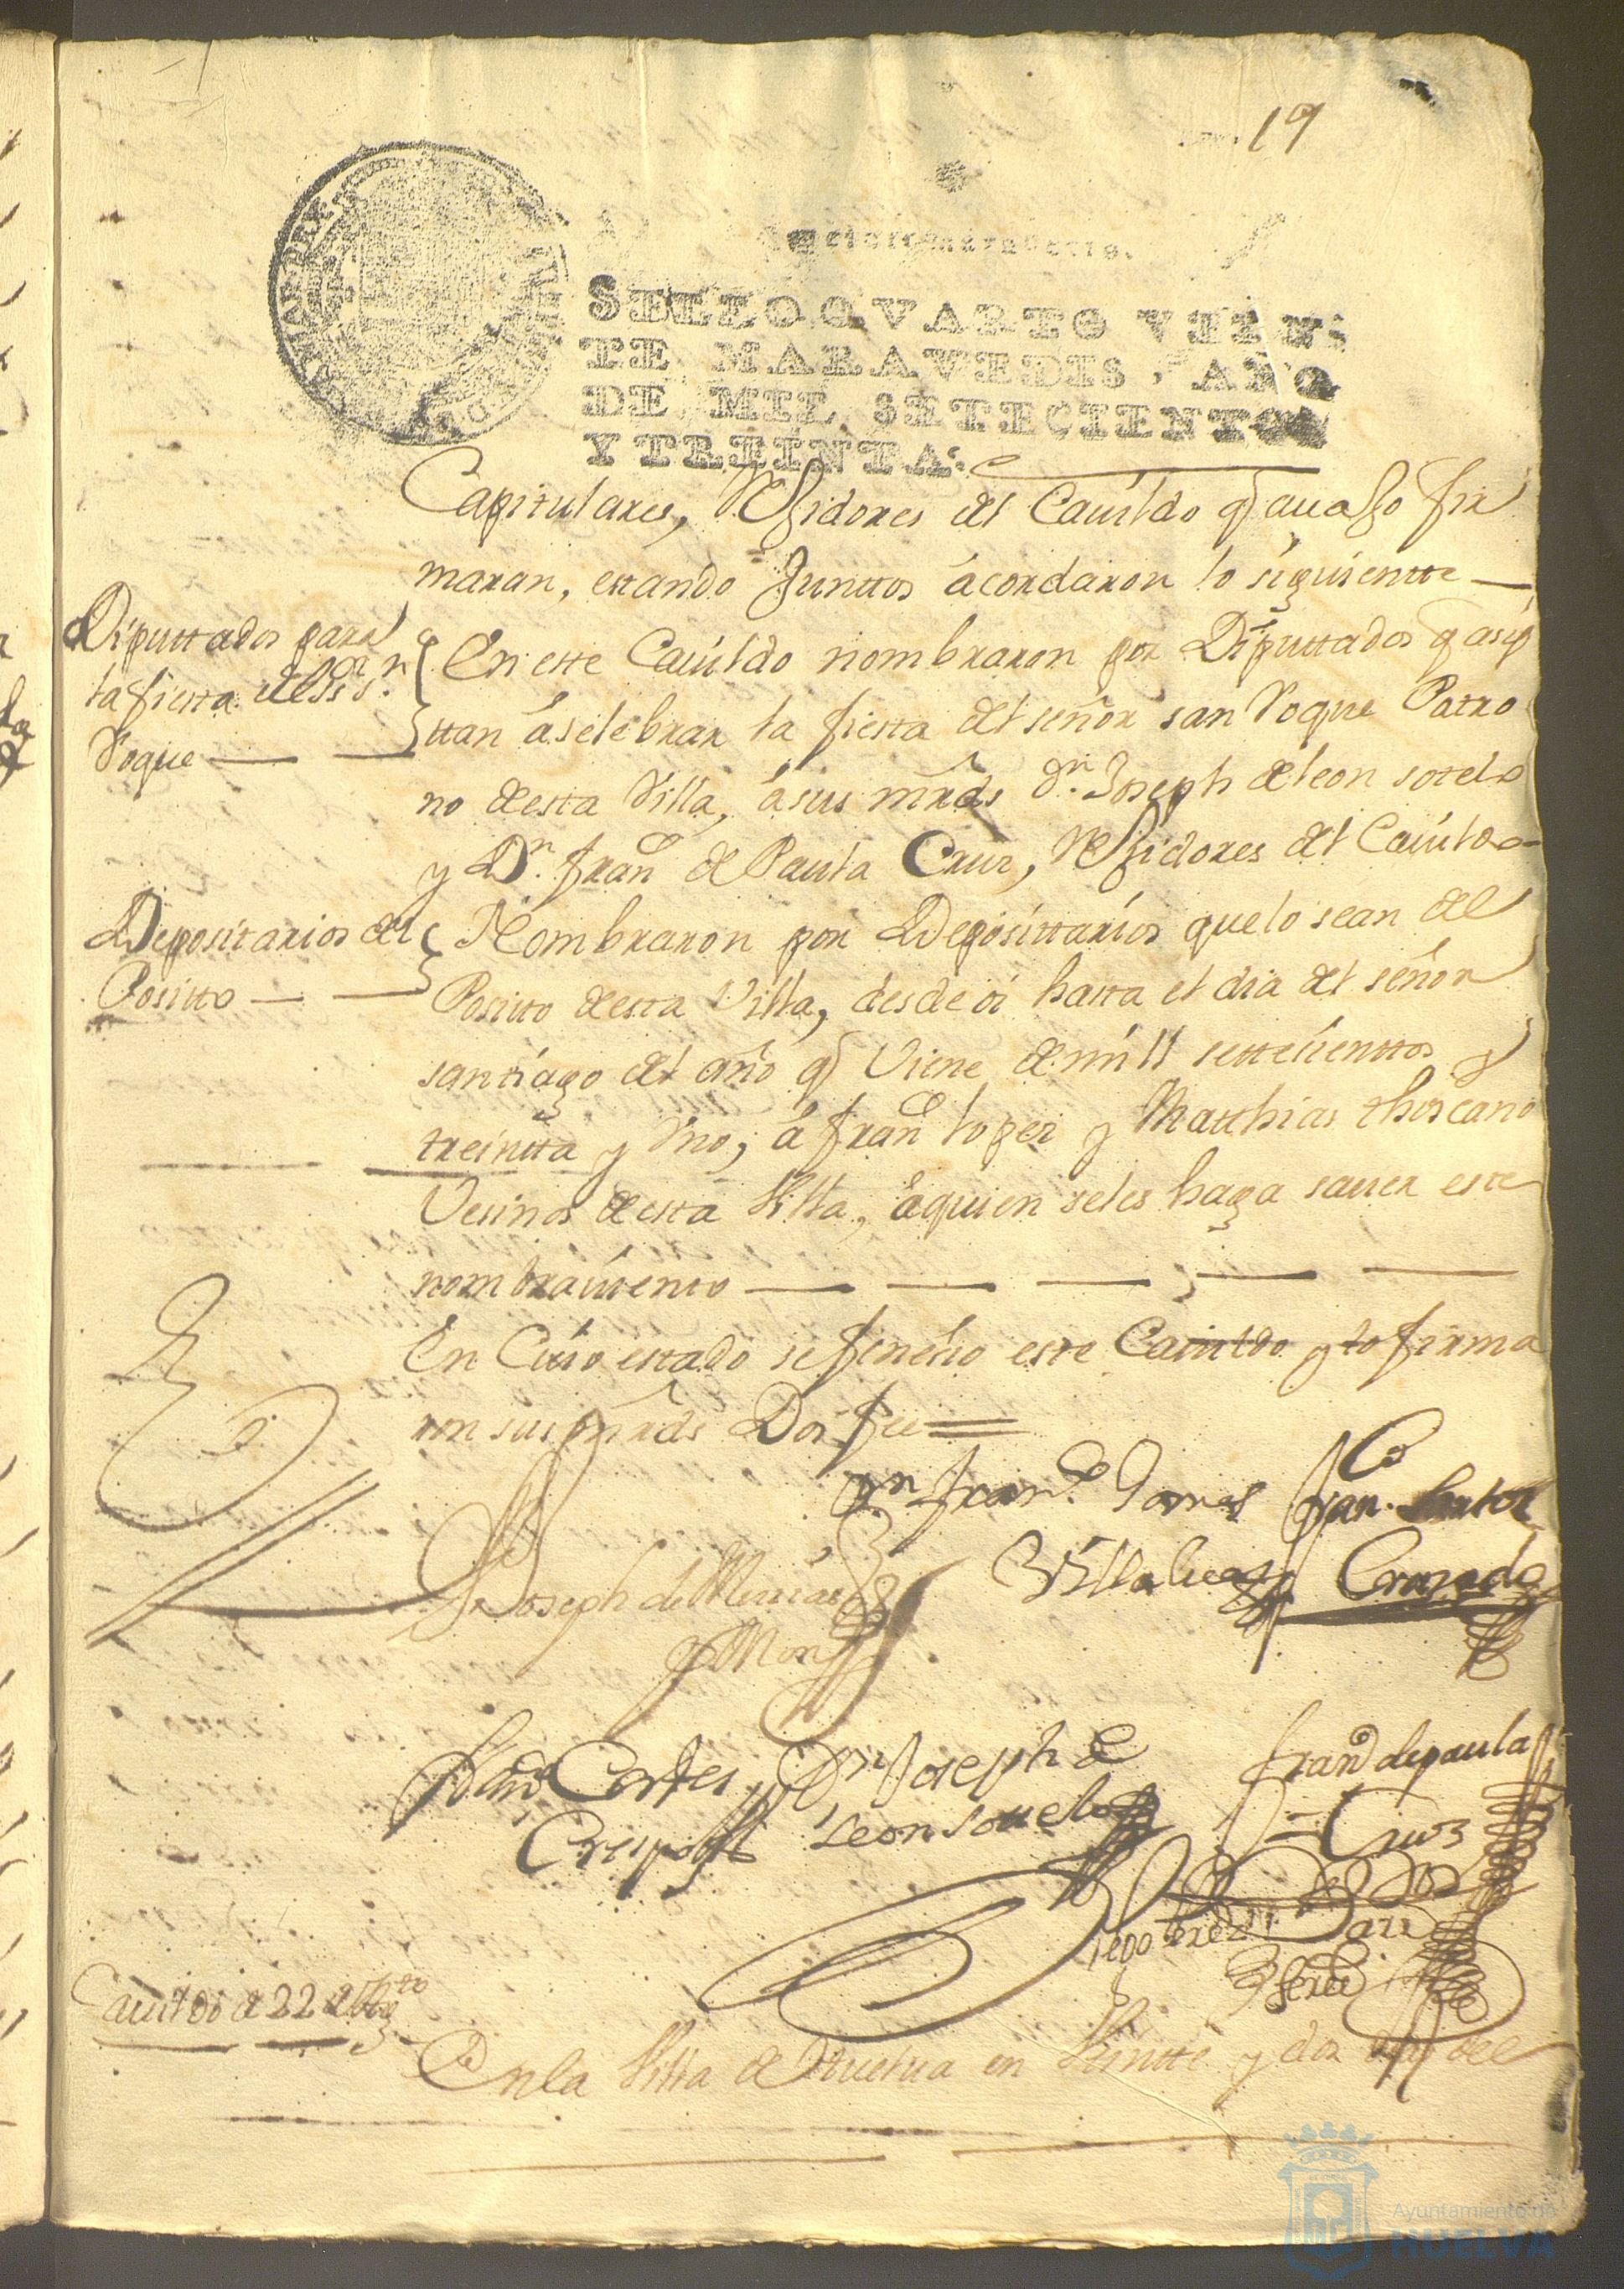 19
SELLO QVARTO VEIN
TE MARAVEDIS, AÑO
DE MIL SETECIENTOS
Y TREINTA.
Capitulares, Rexidores del Cauildo q auajo fir
maran, estando Junttos acordaron lo siguientte
Diputtados para
la fiesta del Sor. Sn.
Roque
En este Cauildo nombraron por Diputtados q asis
ttan a selebrar la fiesta del señor san Roque Patro
no desta Villa, a sus mrds Dn. Joseph de leon sotelo
y Dn. franco de Paula Cruz, Rexidores del Cauildo
Depositarios del
Positto
Nombraron por Deposittarios que lo sean del
Positto desta Villa, desde oi hasta el dia del señor
santiago del año q Viene de mill settecienttos y
treintta y Vno, a franco lopez y Matthias thoscano
Vesinos desta Villa, a quien se les haga sauer este
nombramiento
En Cuio estado se fenecio este Cauildo y lo firma
ron sus mrds Doi fee
Dn franco Gomes
Villalua
Fran.co
Joseph de
y Mon
Cortes
Crespo
Dn Joseph de
Leon sottelo
Franco de paula
Cruz
Diego
Perez
Cauildo de 22 de Agto
En la Villa de Huelua en Veintte y dos dias del
Ayuntamiento de
HUELVA